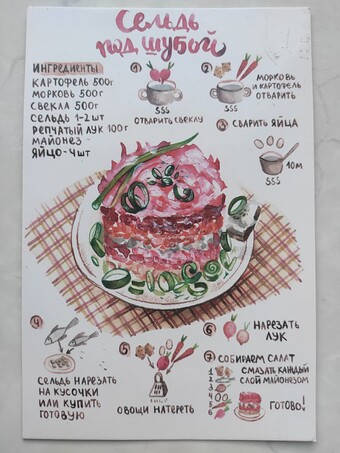 Сельдь
под шубой
Ингредиенты
Картофель 500г
Морковь 500г
Свекла 500г
Сельдь 1-2шт
Репчатый лук 100г
Майонез -
Яйцо - 4шт
1
Отварить свеклу
2
Морковь
и картофель
отварить
3 Сварить яйца
10м
4
Сельдь нарезать
на кусочки
или купить
готовую
5
Овощи натереть
6 Нарезать
лук
7 Собираем салат
1
2
3
4
5
6
Смазать каждый
слой майонезом
Готово!